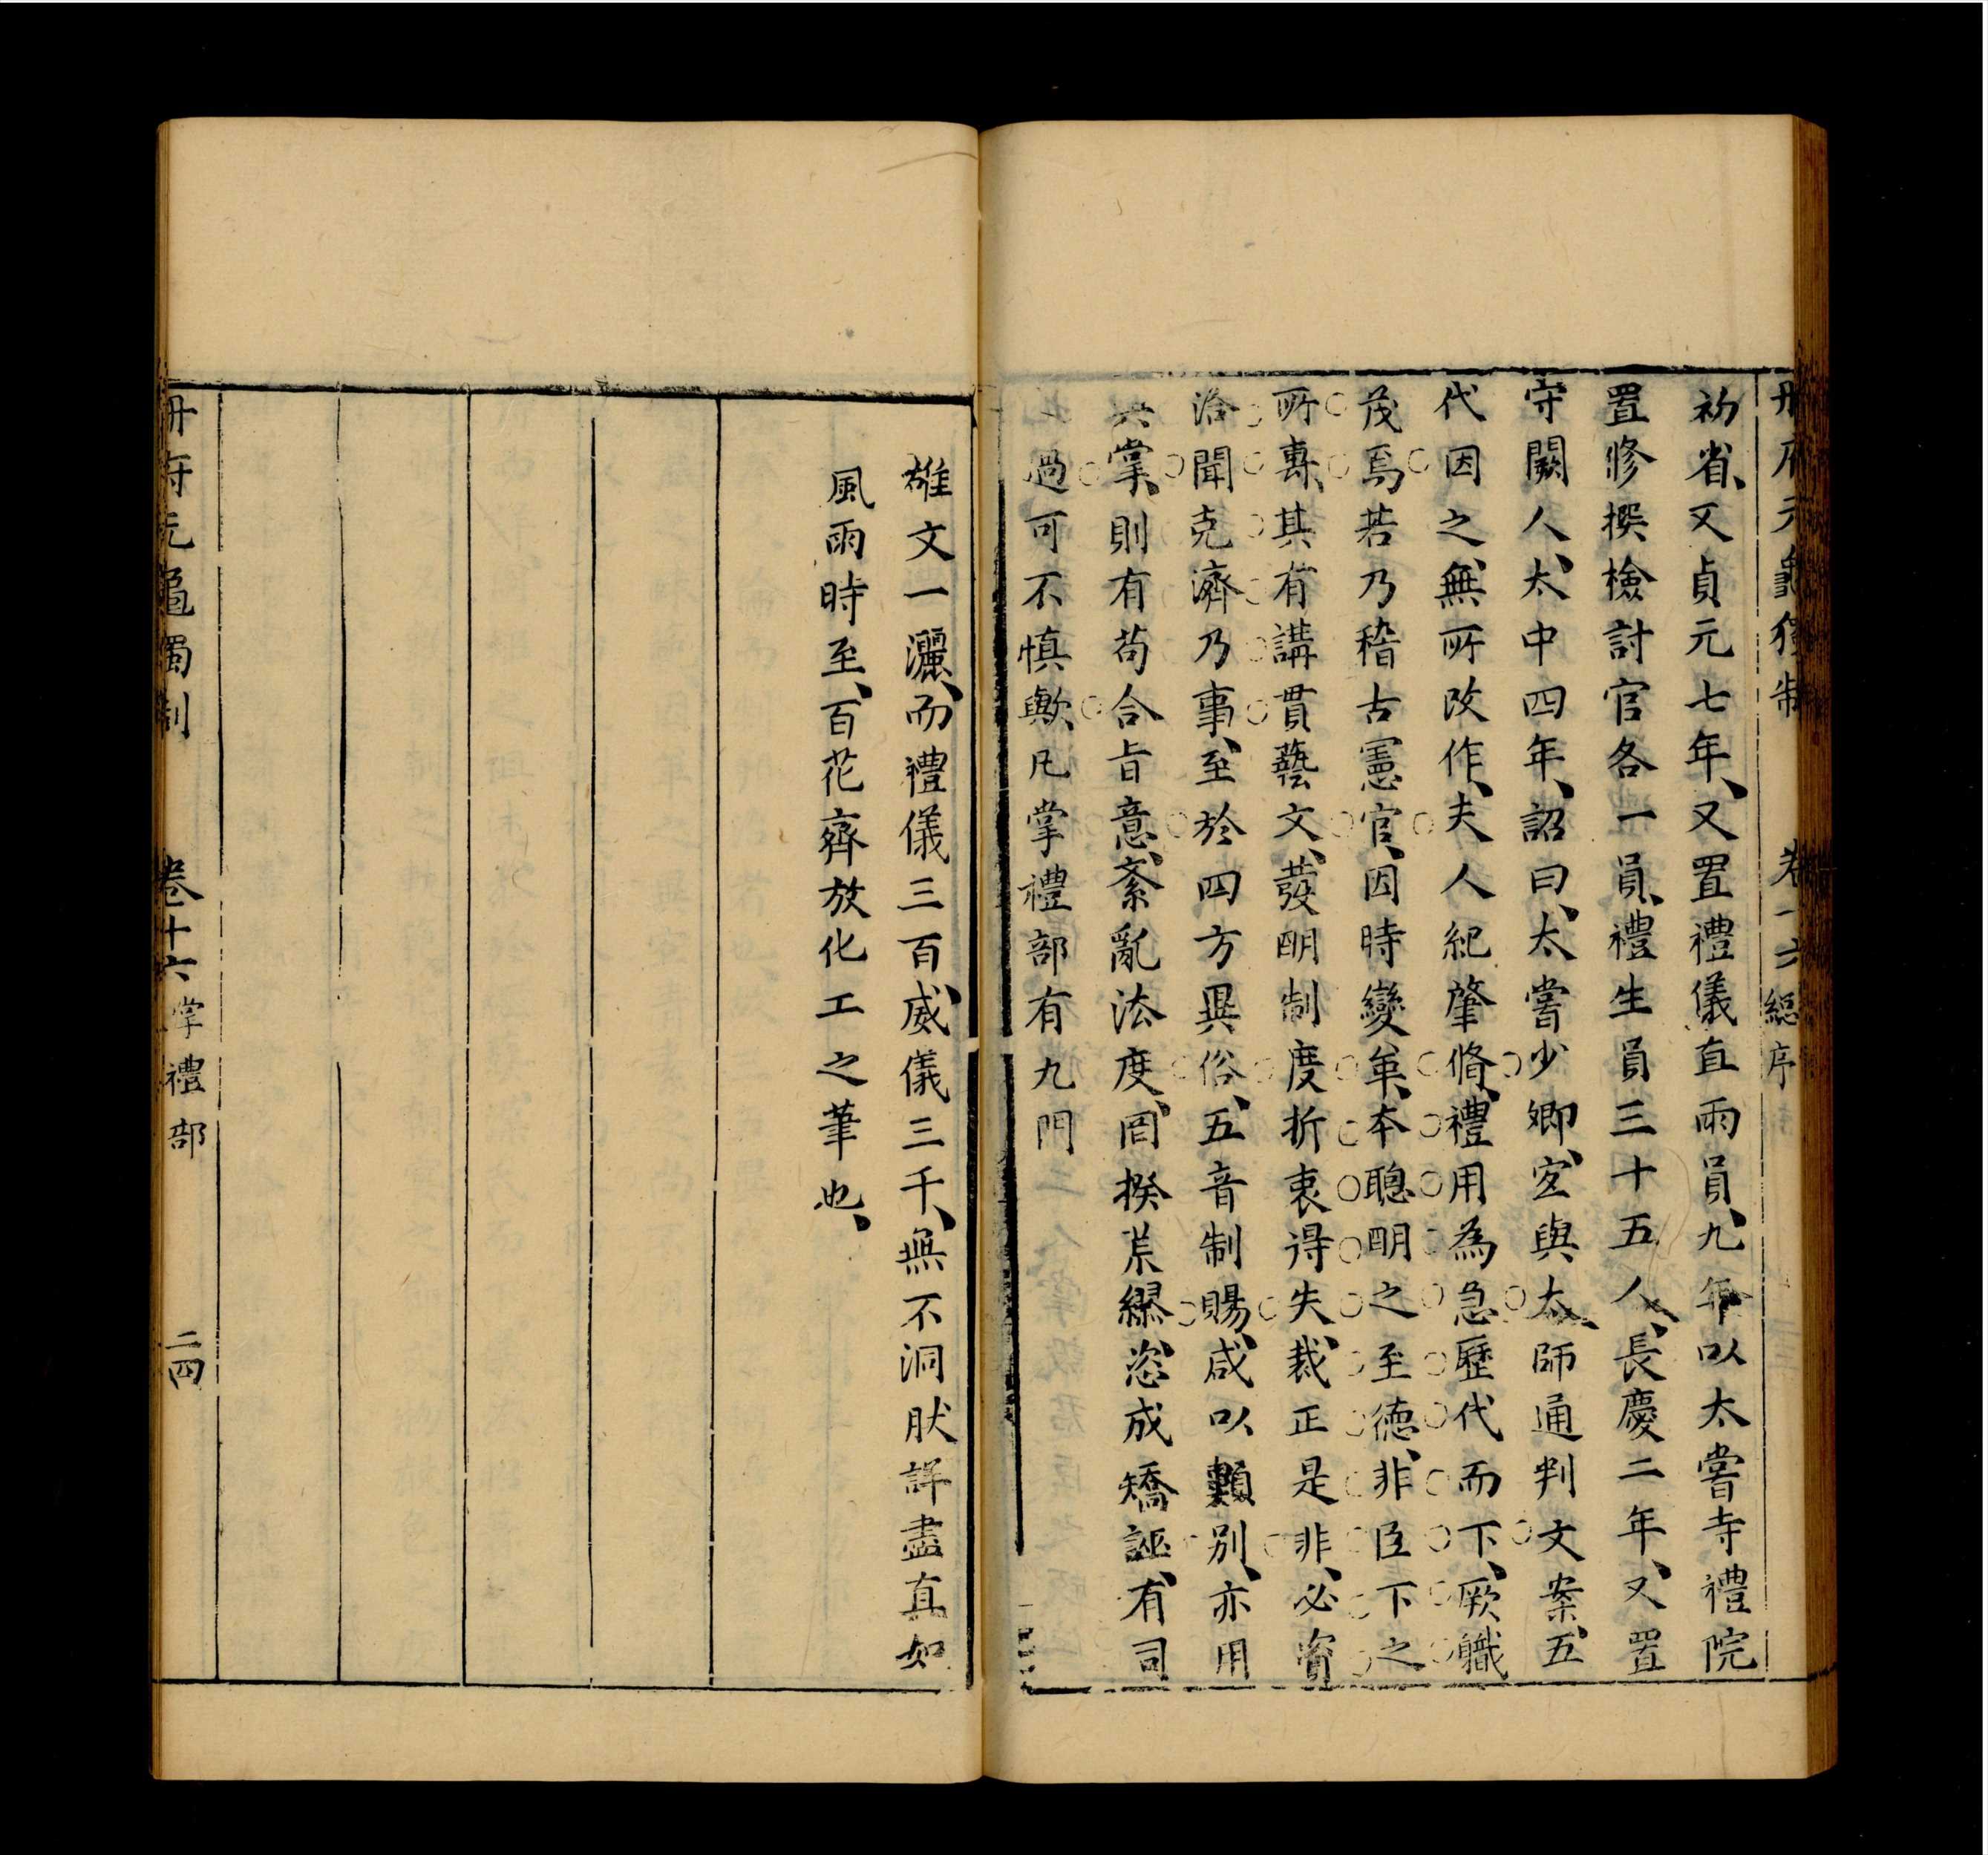 冊府元龜獨制　卷十六　總序
初省、又貞元七年、又置禮儀直兩員、九年以太嘗寺禮院
置修撰檢討官各一員、禮生員三十五人、長慶二年、又置
守闕人、太中四年、詔曰、太嘗少卿、宐與太師通判文案、五
代因之、無所改作、夫人紀肇脩、禮用為急、歷代而下、厥職
茂焉、若乃稽古憲官、因時變革、本聰明之至德、非臣下之
所專、其有講貫藝文、發明制度折衷得失、裁正是非、必資
洽聞克濟乃事、至於四方異俗、五音制賜、咸以類別、亦用
共掌、則有苟合旨意、紊亂法度、罔揆荒繆、恣成矯誣、有司
之過可不慎歟、凡掌禮部有九門
雄文一灑、而禮儀三百、威儀三千、無不洞肰詳盡真如
風雨時至、百花齊放化工之筆也、
冊府元龜獨制　卷十六　掌禮部　二四